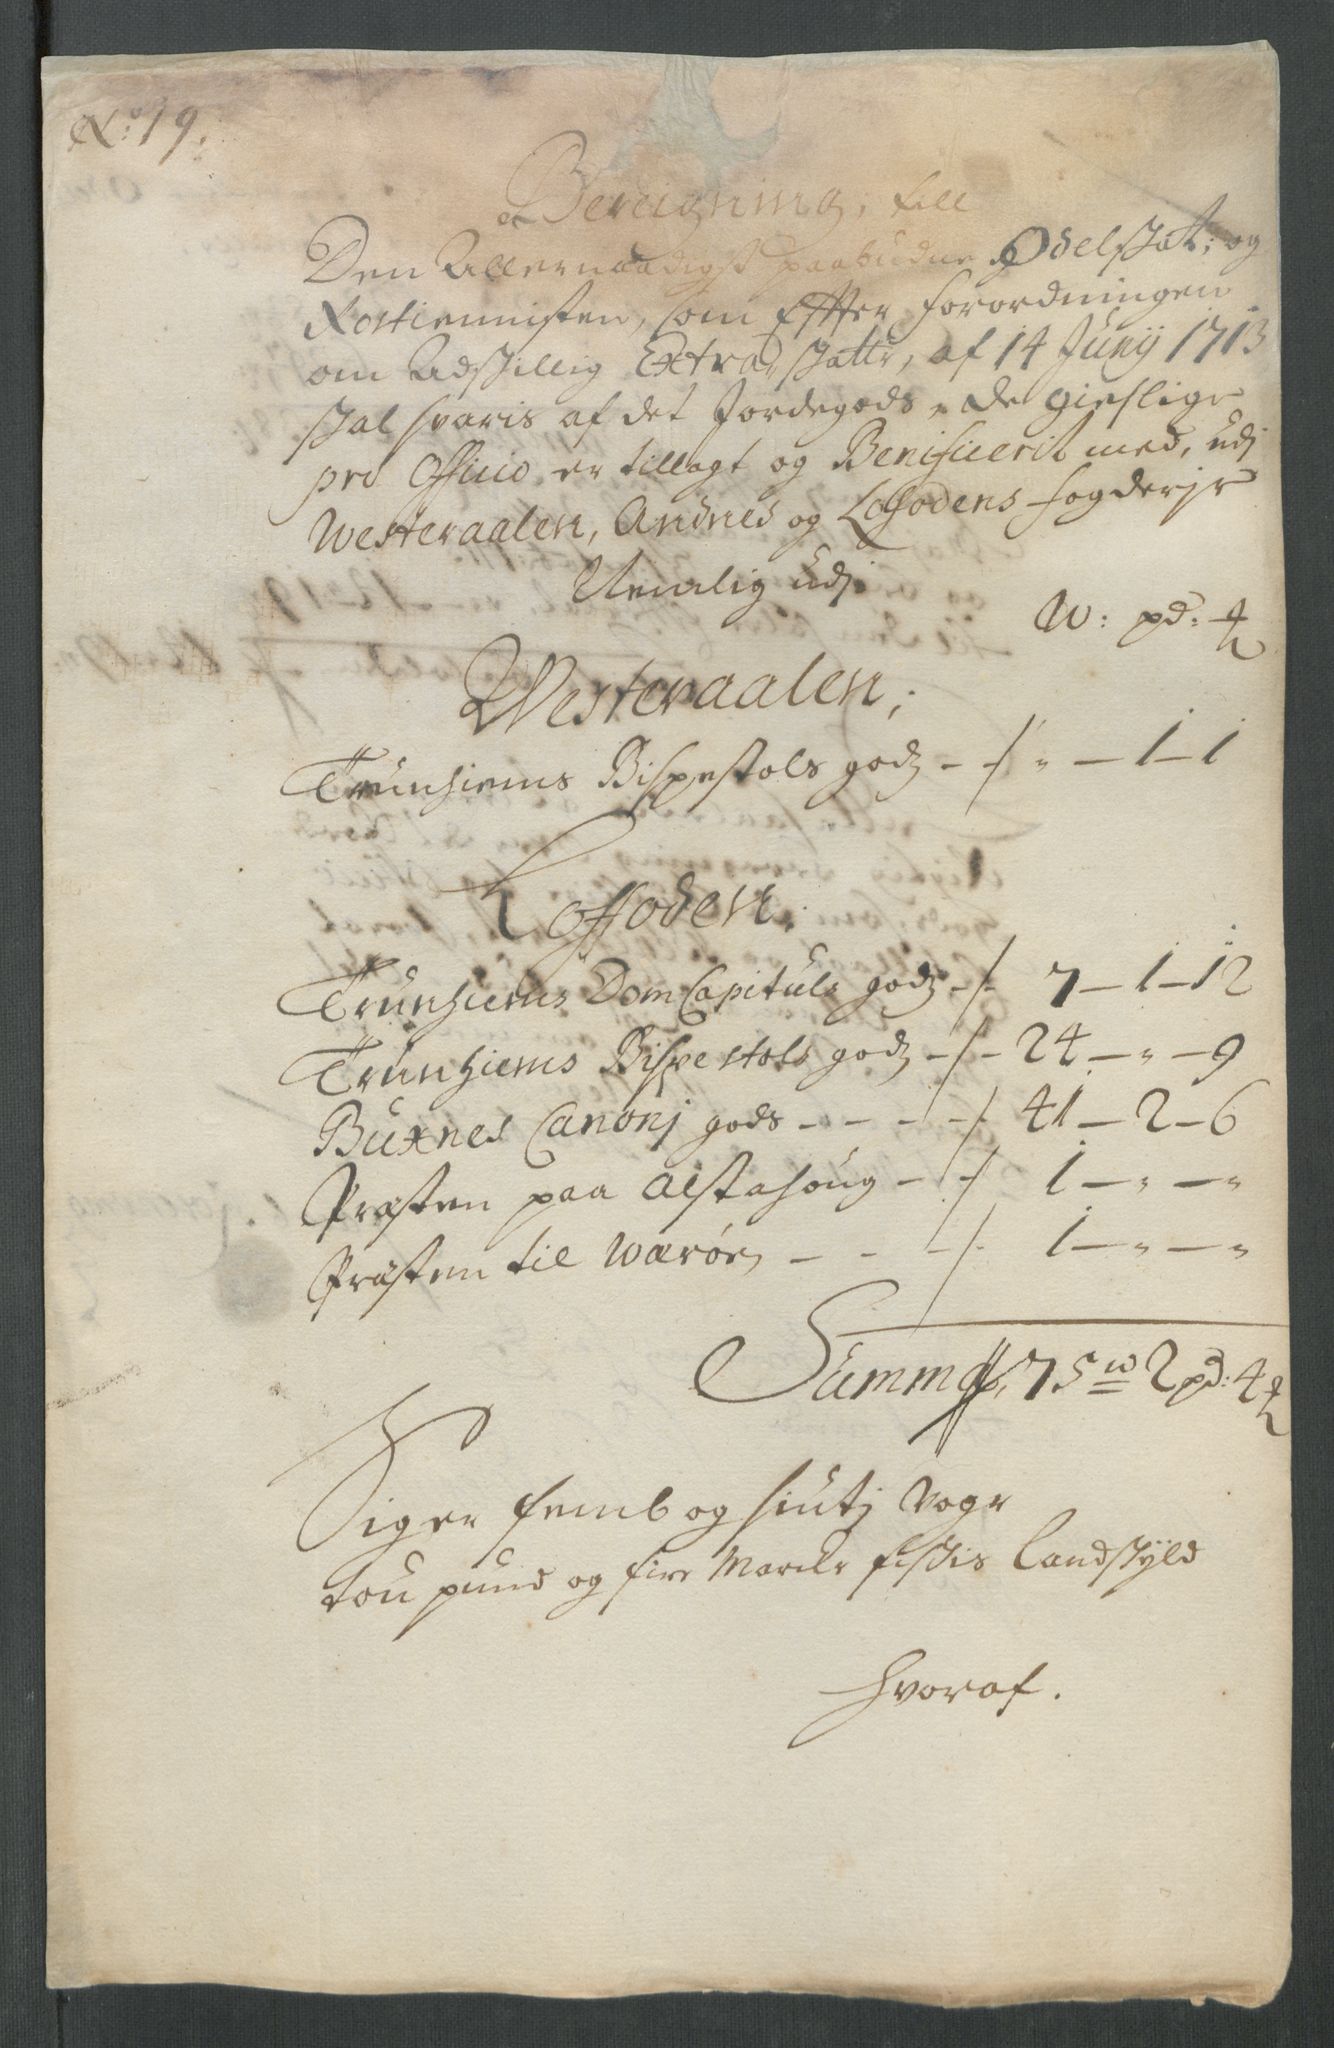 No: 19.
Bereigning, till
Den Allernaadigst paabudne Odelskat; og
Rostienisten, som Effter forordningen
om Adskillig Extra skatte, af 14 Junij 1713
skal svaris af det Jordegods, de gieslige
pro Officio er tillagt og Benificerit med, udj
Westeraalen, Andnes og Lofodens fogderje
Nemlig udj
W: pd: ℔
Westeraalen;
Trunhiems Bispestols godz - / „ - 1 - 1
Loffoden;
Trunhiems DomCapituls godz - / - 7 - 1 - 12
Trunhiems Bispestols godz - / - 24 - „ - 9
Buxnes Canonj gods - - - - / - 41 - 2 - 6
Præsten paa Alstahoug - / - 1 - „ - „
Præsten til Warøe, - - - / - 1 - „ - „
Summa, 75 w 2 pd: 4 ℔
Siger femb og siutj voge
tou pund og fire Marck fiskis Landskyld
hvoraf.